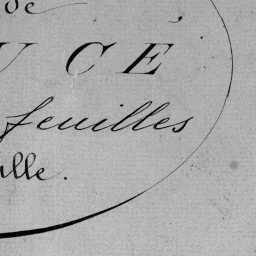 de
UCÉ
feuilles
ille.